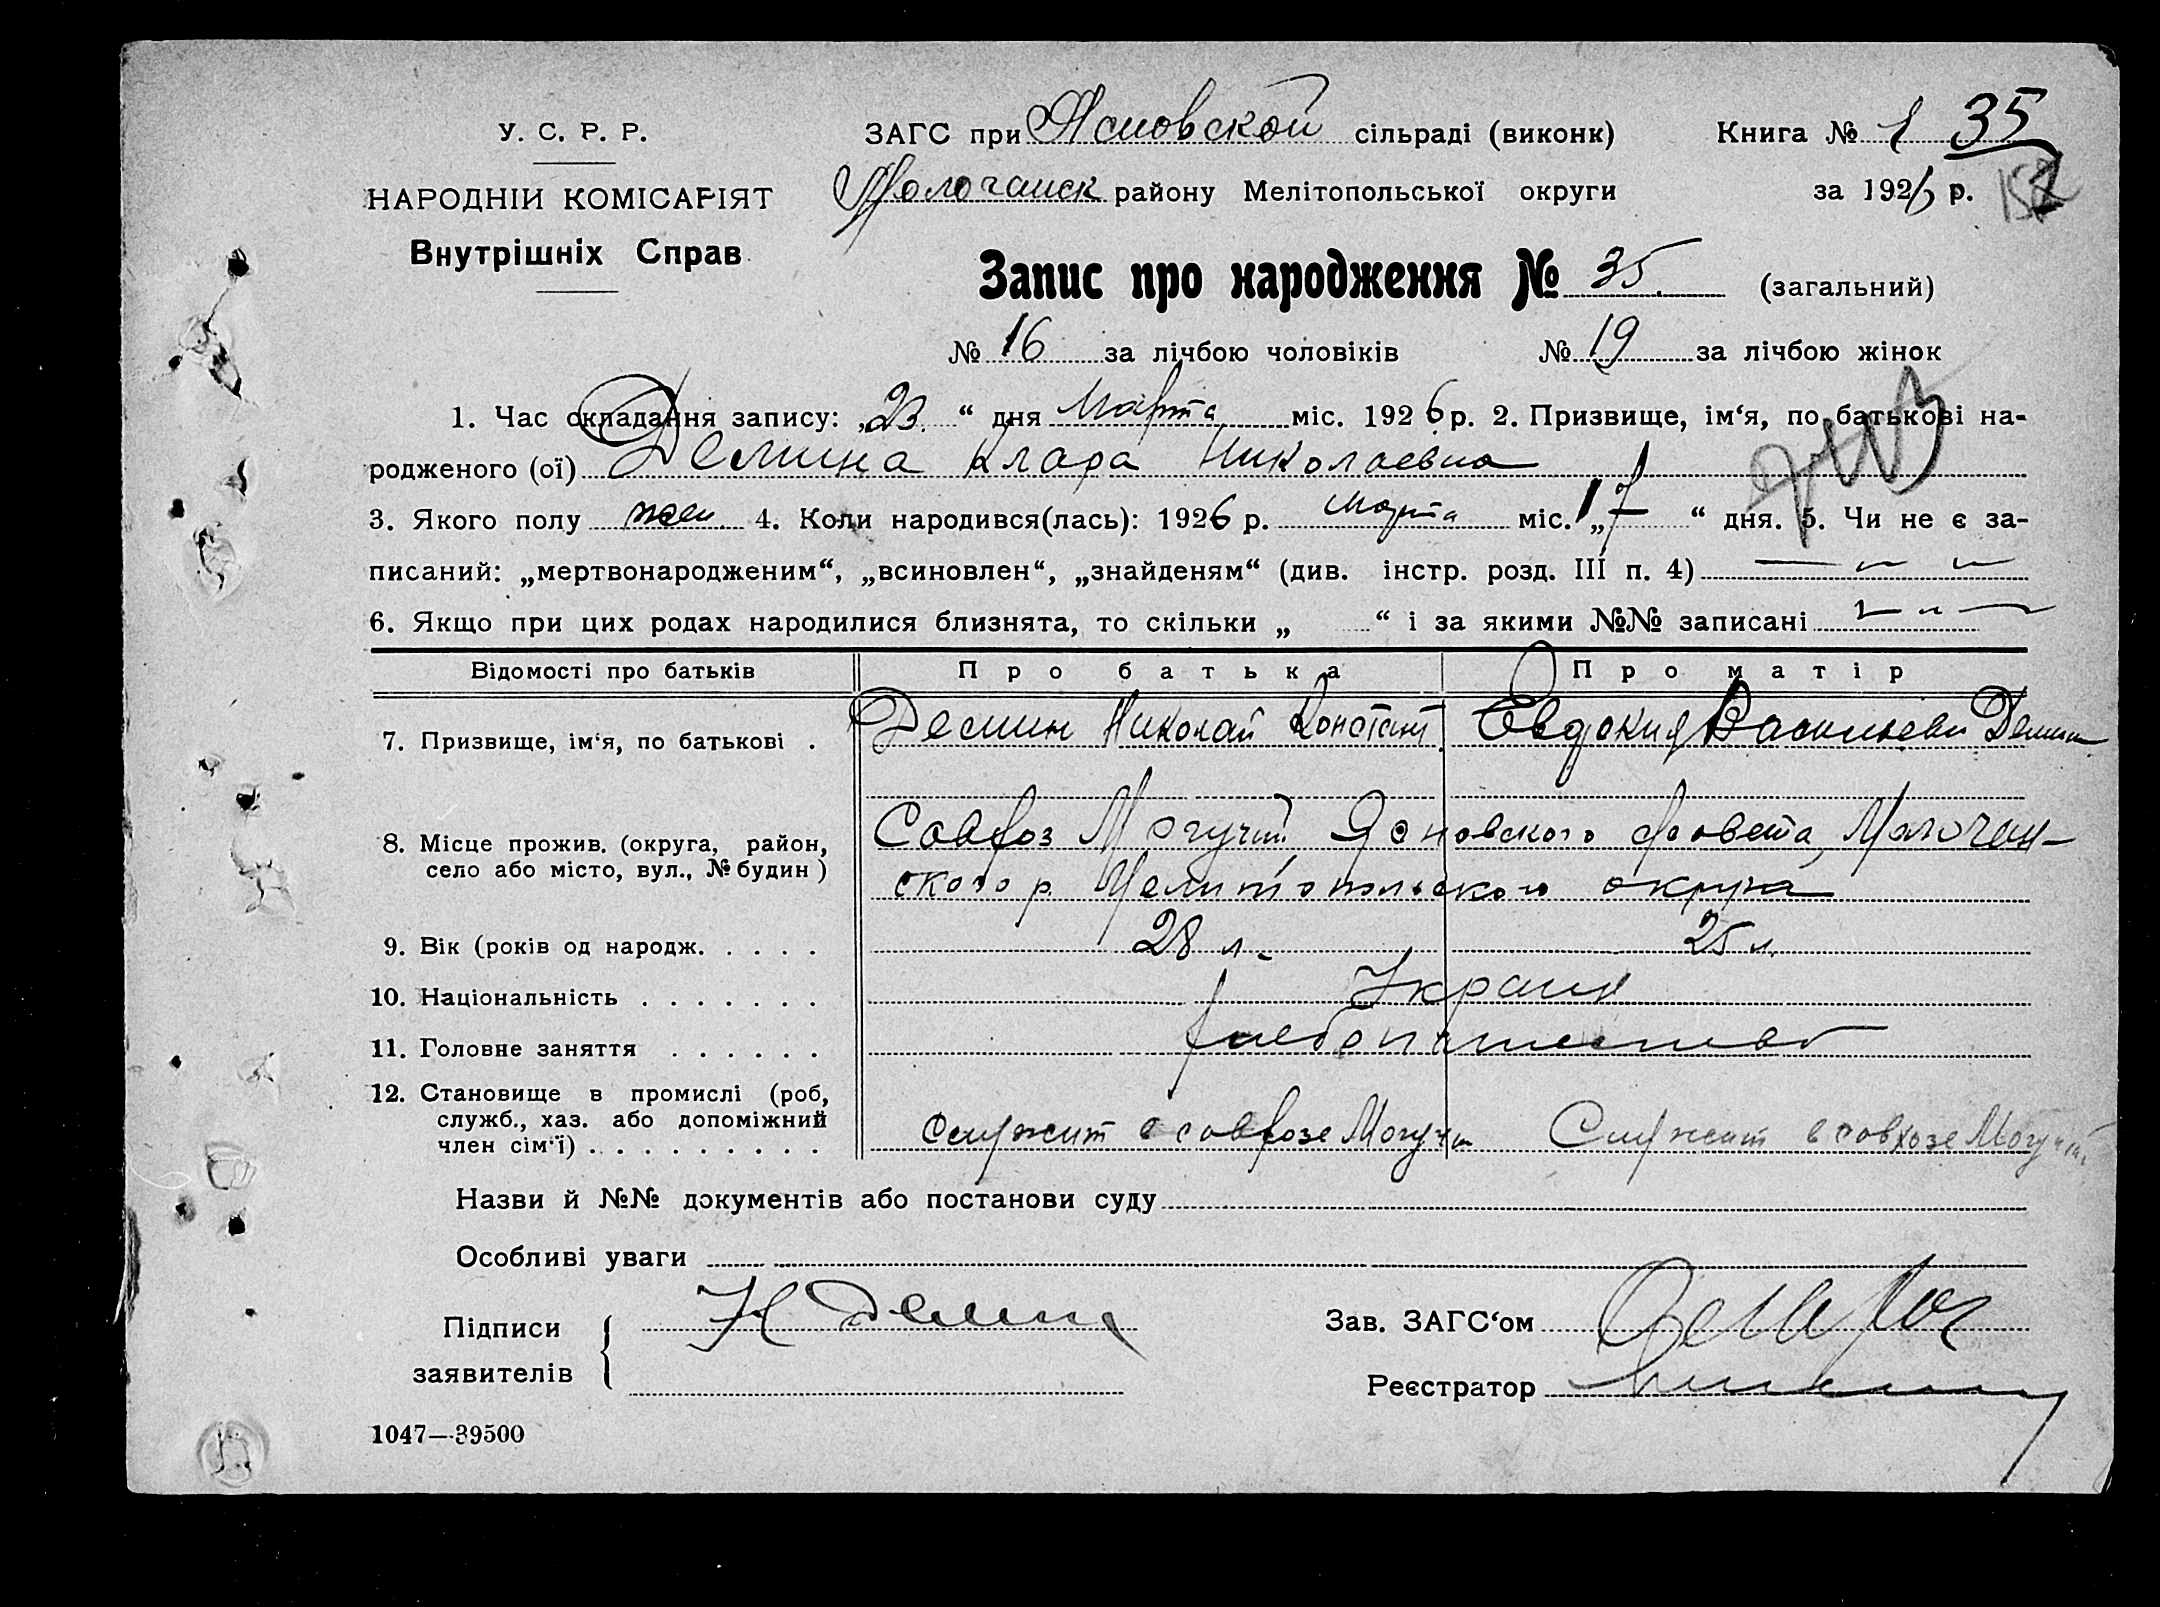 У. С. Р. Р.
НАРОДНІЙ КОМІСАРІЯТ
Внутрішніх Справ
ЗАГС при Ясновской сільраді (виконк)
Молочанск району Мелітопольської округи
Книга № 1 35
за 1926 р.
Запис про народження № 35. (загальний)
№ 16 за лічбою чоловіків № 19 за лічбою жінок
1. Час складання запису: „23 “ дня Марта міс. 1926 р. 2. Призвище, ім‘я, по батькові на-
родженого (ої) Демина Клара Николаевна
3. Якого полу жен 4. Коли народився(лась): 1926 р. марта міс. „17 “ дня. 5. Чи не є за-
писаний: „мертвонародженим“, „всиновлен“, „знайденям“ (див. інстр. розд. III п. 4) — „ „
6. Якщо при цих родах народилися близнята, то скільки „ “ і за якими №№ записані — „ —
Відомості про батьків Про батька Про матір
7. Призвище, ім‘я, по батькові . Демин Николай Констант. Евдокия Васильевн Демин
8. Місце прожив. (округа, район,
село або місто, вул., № будин ) Совхоз Могучий Ясновского с/совета, Молочан-
ского р. Мелитопольского округа
9. Вік (років од народж. . . . . 28 л. 25 л.
10. Національність . . . . . . . Украин
11. Головне заняття . . . . . . хлебопашество
12. Становище в промислі (роб,
служб., хаз. або допоміжний
член сім‘ї) . . . . . . . . . Служит в совхозе Могучи Служит в совхозе Могучи
Назви й №№ документів або постанови суду
Особливі уваги
Підписи
заявителів
Н Демин
Зав. ЗАГС‘ом
Реєстратор
1047—39500